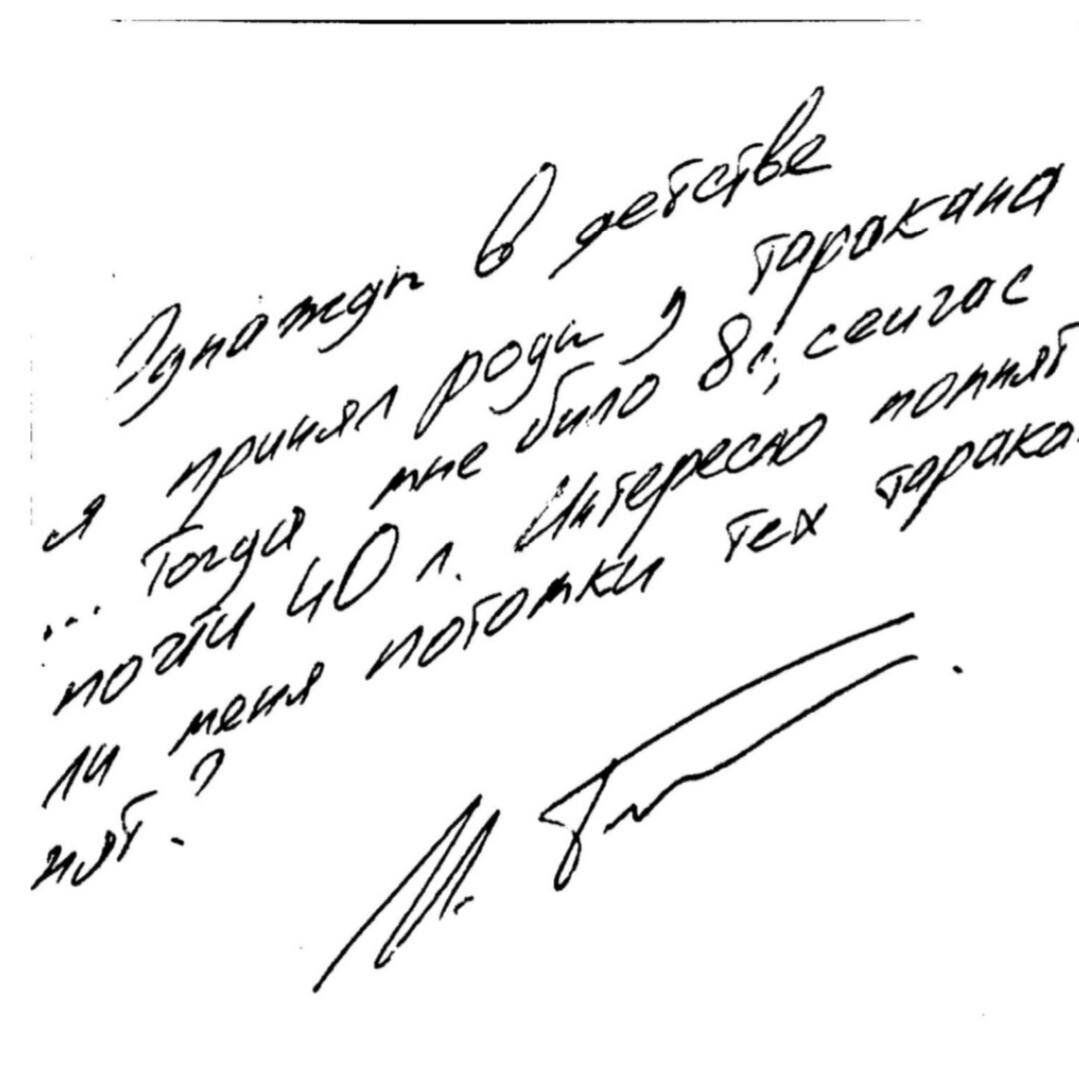 Однажды в детстве
я принял роды у таракана
... Тогда мне было 8 л, сейчас
почти 40 л. Интересно помнят
ли меня потомки тех тарака-
нят.?